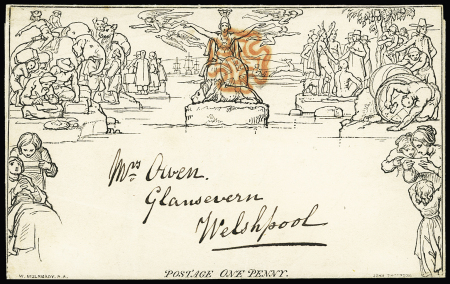 Mrs Owen.
Glansevern
Welshpool
W. MULREADY, R.A.
POSTAGE ONE PENNY.
JOHN THOMPSON